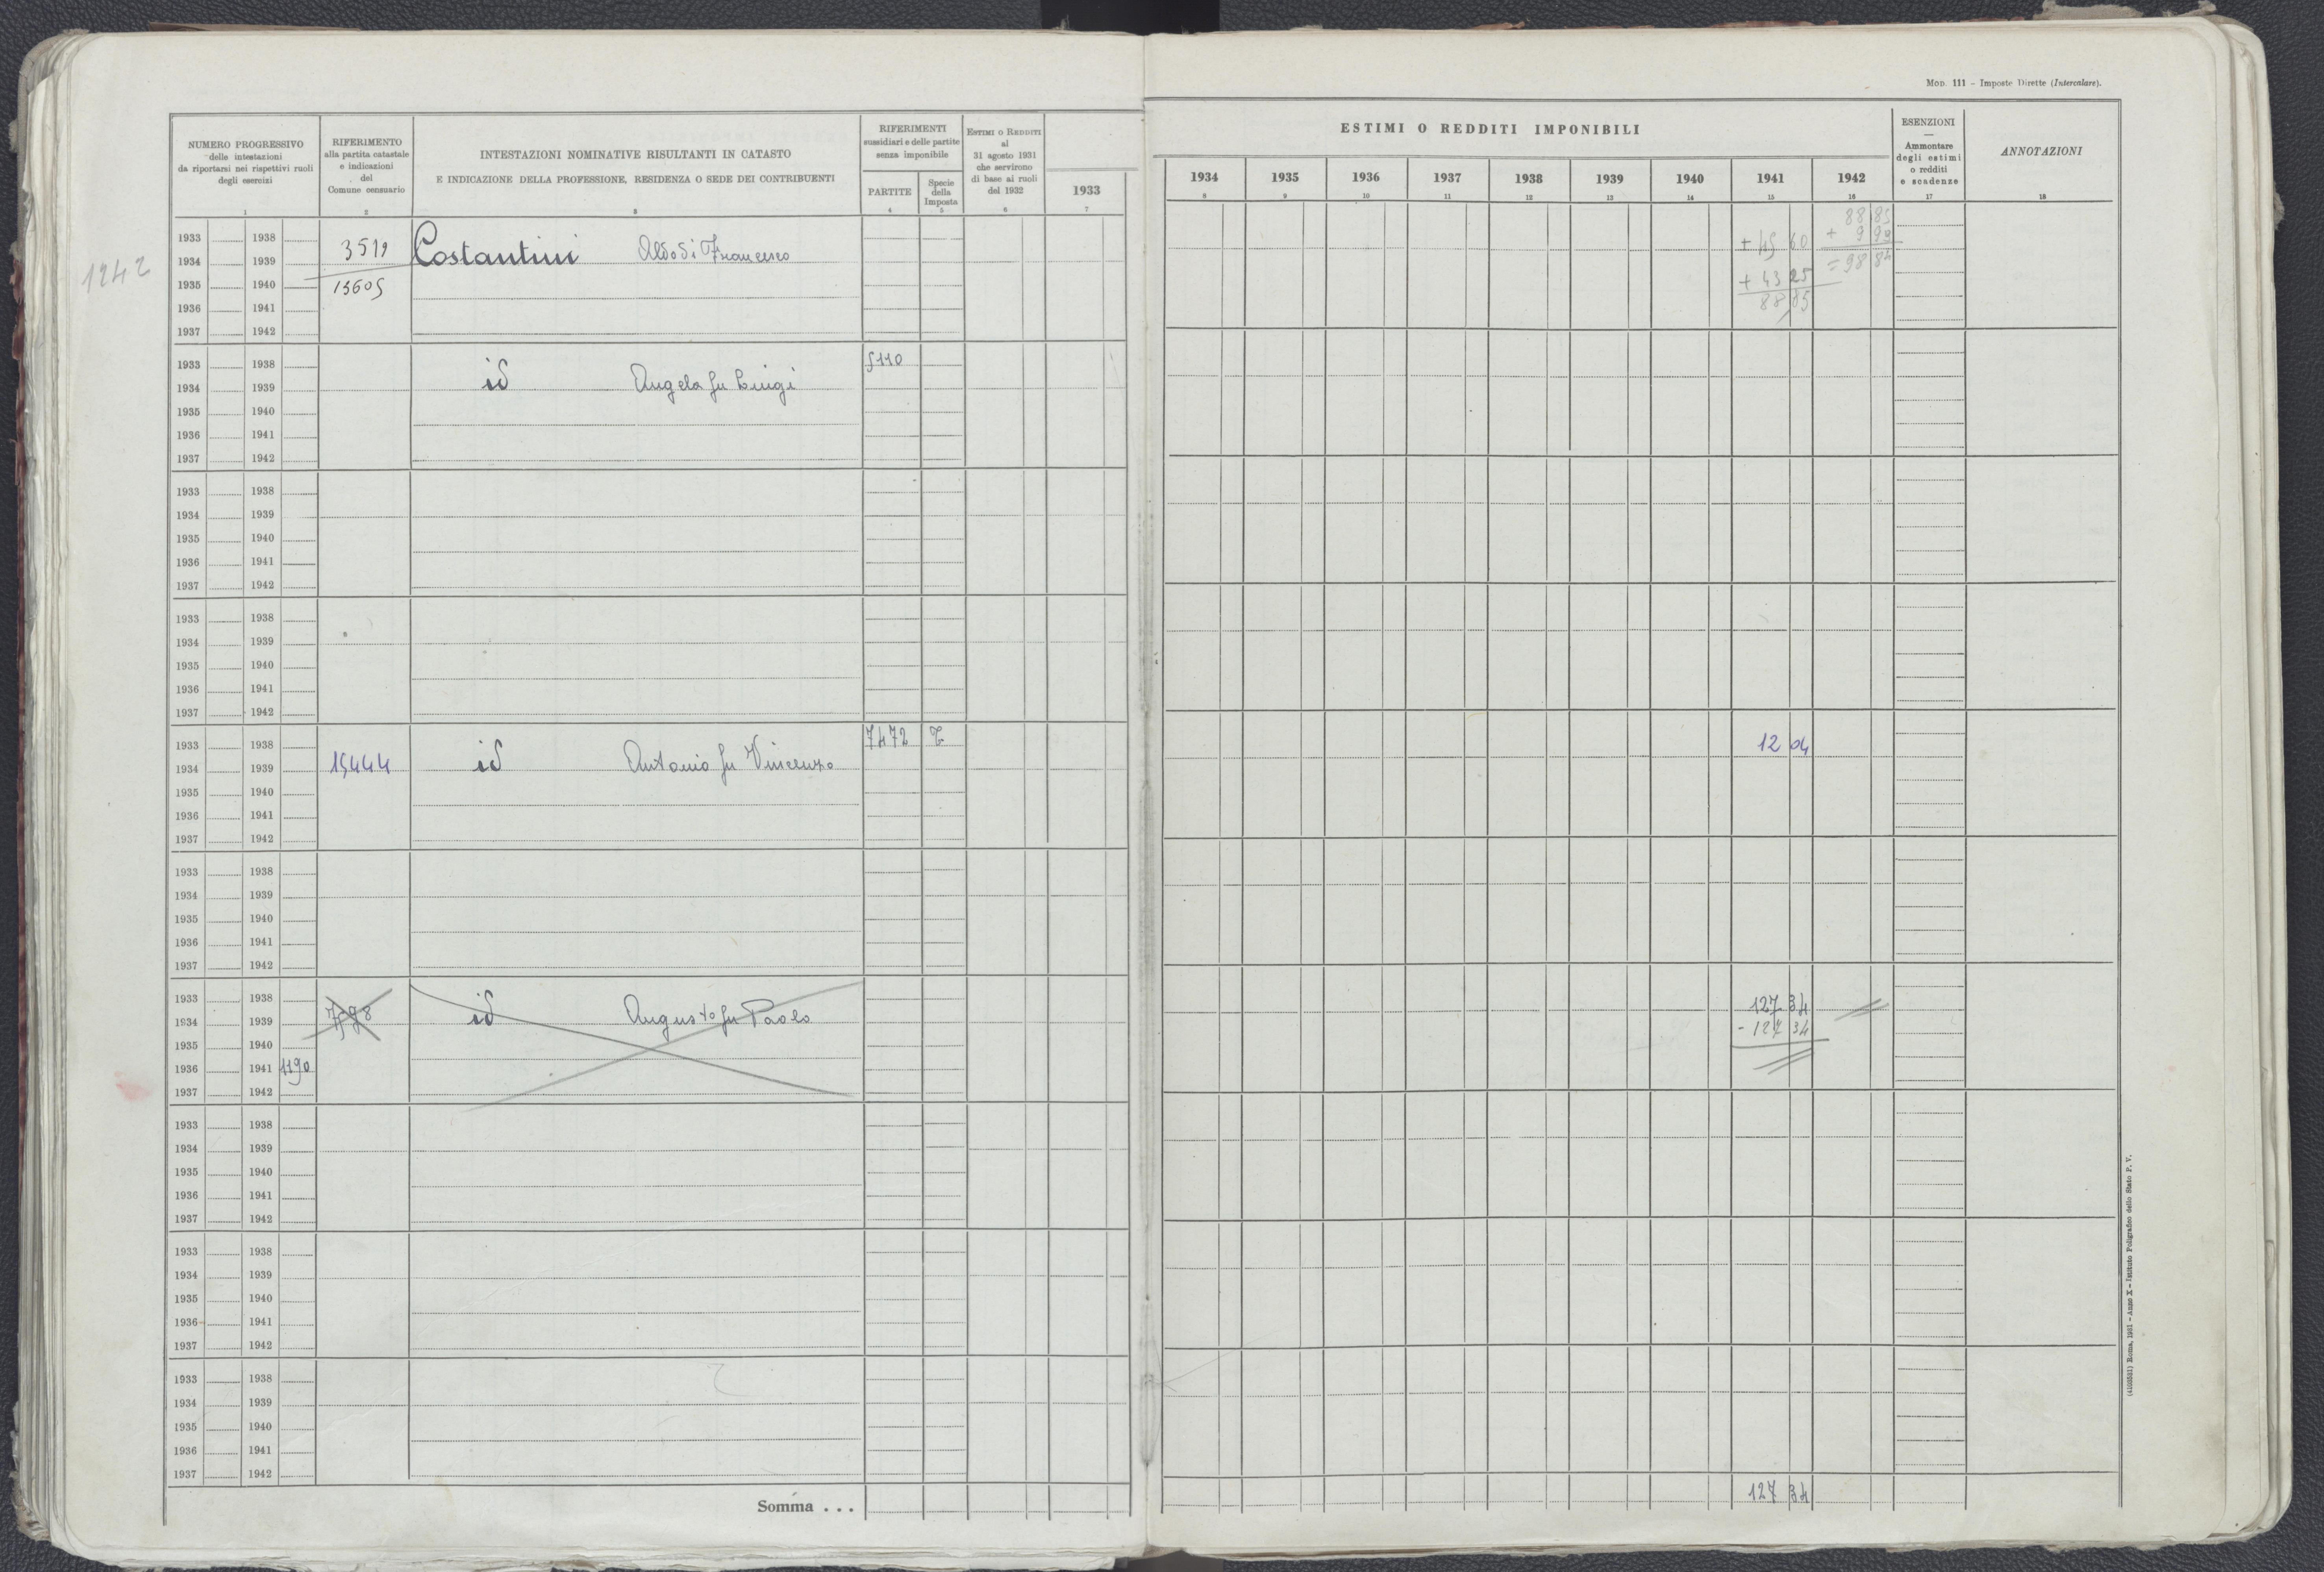 Mod. 111 - Imposte Dirette (Intercalare).
NUMERO PROGRESSIVO
delle intestazioni
da riportarsi nei rispettivi ruoli
degli esercizi
1
RIFERIMENTO
alla partita catastale
e indicazioni
del
Comune censuario
2
INTESTAZIONI NOMINATIVE RISULTANTI IN CATASTO
E INDICAZIONE DELLA PROFESSIONE, RESIDENZA O SEDE DEI CONTRIBUENTI
3
RIFERIMENTI
sussidiari e delle partite
senza imponibile
PARTITE
4
Specie
della
Imposta
5
Estimi o Redditi
al
31 agosto 1931
che servirono
di base ai ruoli
del 1932
6
1933
7
ESTIMI O REDDITI IMPONIBILI
1934 1935 1936 1937 1938 1939 1940 1941 1942
8 9 10 11 12 13 14 15 16
ESENZIONI
—
Ammontare
degli estimi
o redditi
e scadenze
17
ANNOTAZIONI
18
1242
1933 1938
1934 1939
1935 1940
1936 1941
1937 1942
3519
13605
Costantini Aldo di Francesco
+ 45 60
+ 43 25
88 85
88 85
+ 9 99
= 98 84
1933 1938
1934 1939
1935 1940
1936 1941
1937 1942
id Angela fu Luigi
5110
1933 1938
1934 1939
1935 1940
1936 1941
1937 1942
1933 1938
1934 1939
1935 1940
1936 1941
1937 1942
1933 1938
1934 1939
1935 1940
1936 1941
1937 1942
15444
id Antonio fu Vincenzo
7472 T
12 04
1933 1938
1934 1939
1935 1940
1936 1941
1937 1942
1933 1938
1934 1939
1935 1940
1936 1941 1190
1937 1942
id Augusto fu Paolo
127 34
- 127 34
1933 1938
1934 1939
1935 1940
1936 1941
1937 1942
1933 1938
1934 1939
1935 1940
1936 1941
1937 1942
1933 1938
1934 1939
1935 1940
1936 1941
1937 1942
Somma . . .
127 34
(4100521) Roma, 1931 - Anno X - Istituto Poligrafico dello Stato P. V.